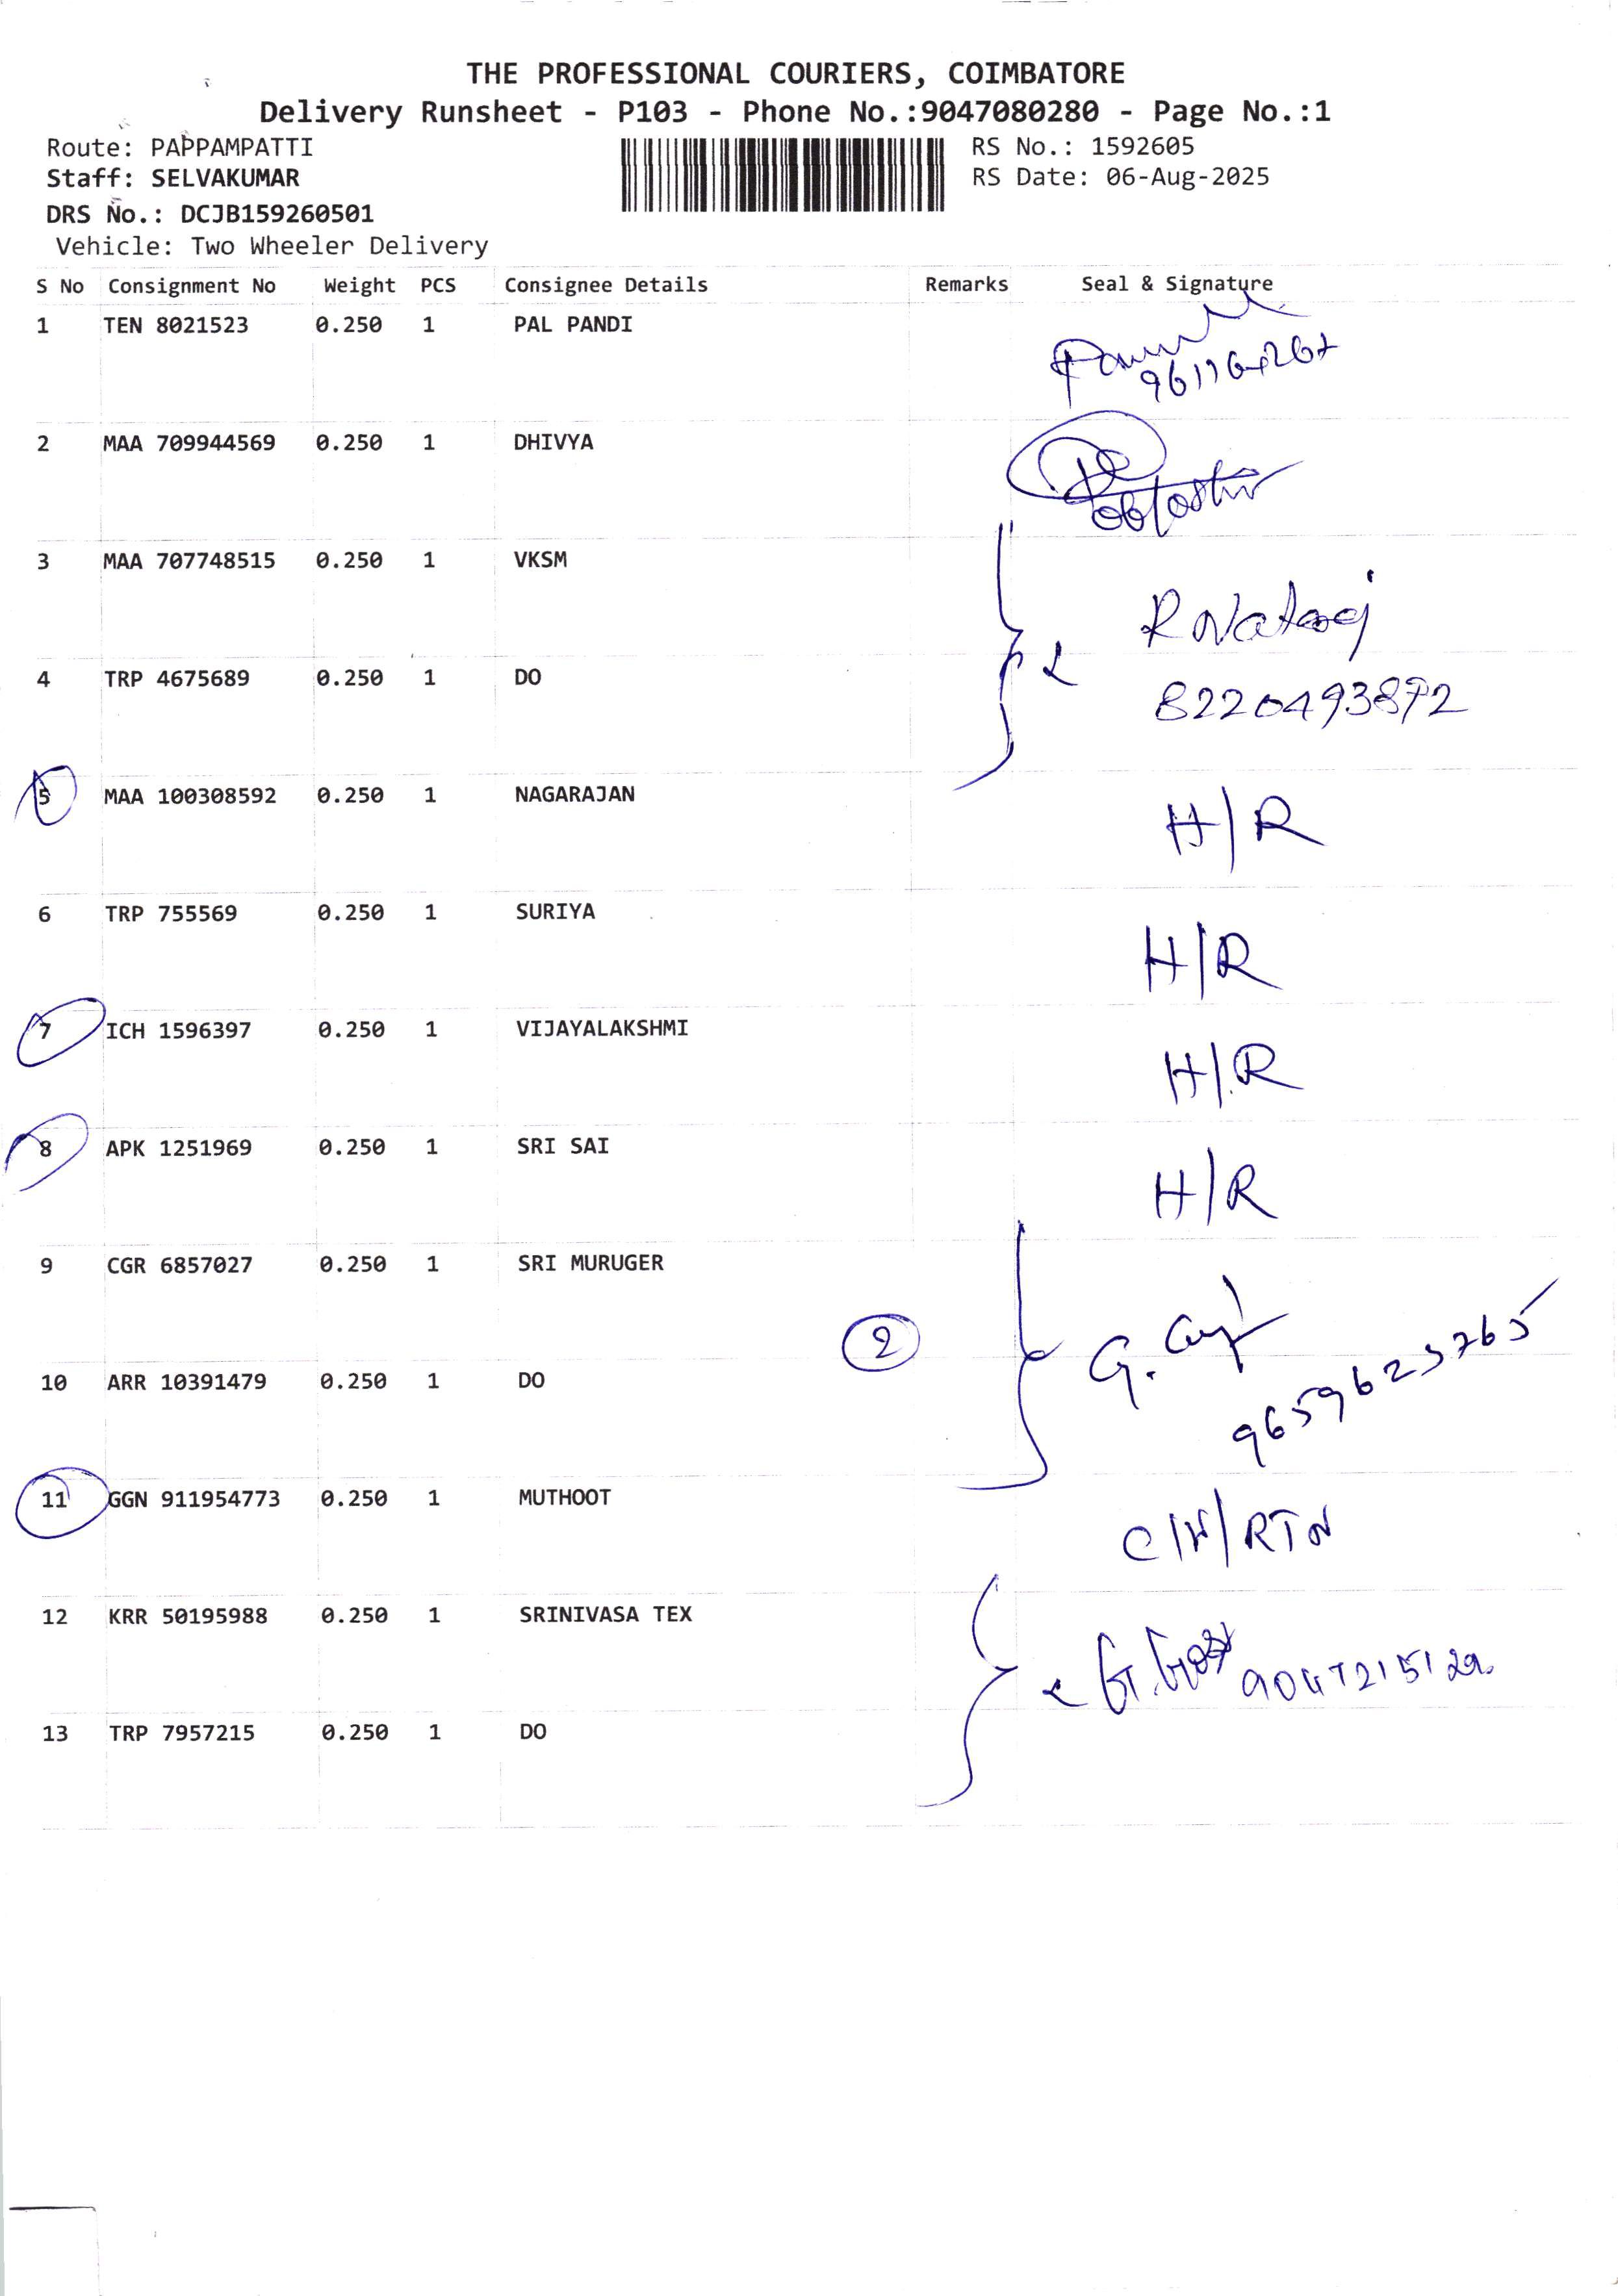 THE PROFESSIONAL COURIERS, COIMBATORE
Delivery Runsheet - P103 - Phone No.:9047080280 - Page No.:1
Route: PAPPAMPATTI
RS No.: 1592605
Staff: SELVAKUMAR
RS Date: 06-Aug-2025
DRS No.: DCJB159260501
Vehicle: Two Wheeler Delivery
S No Consignment No Weight PCS Consignee Details Remarks Seal & Signature
1 TEN 8021523 0.250 1 PAL PANDI
2 MAA 709944569 0.250 1 DHIVYA
3 MAA 707748515 0.250 1 VKSM
R Nataraj
4 TRP 4675689 0.250 1 DO
8220493872
5 MAA 100308592 0.250 1 NAGARAJAN H/R
6 TRP 755569 0.250 1 SURIYA H/R
7 ICH 1596397 0.250 1 VIJAYALAKSHMI H/R
8 APK 1251969 0.250 1 SRI SAI H/R
9 CGR 6857027 0.250 1 SRI MURUGER
2
10 ARR 10391479 0.250 1 DO
9659623765
11 GGN 911954773 0.250 1 MUTHOOT C/N/RTN
12 KRR 50195988 0.250 1 SRINIVASA TEX
13 TRP 7957215 0.250 1 DO